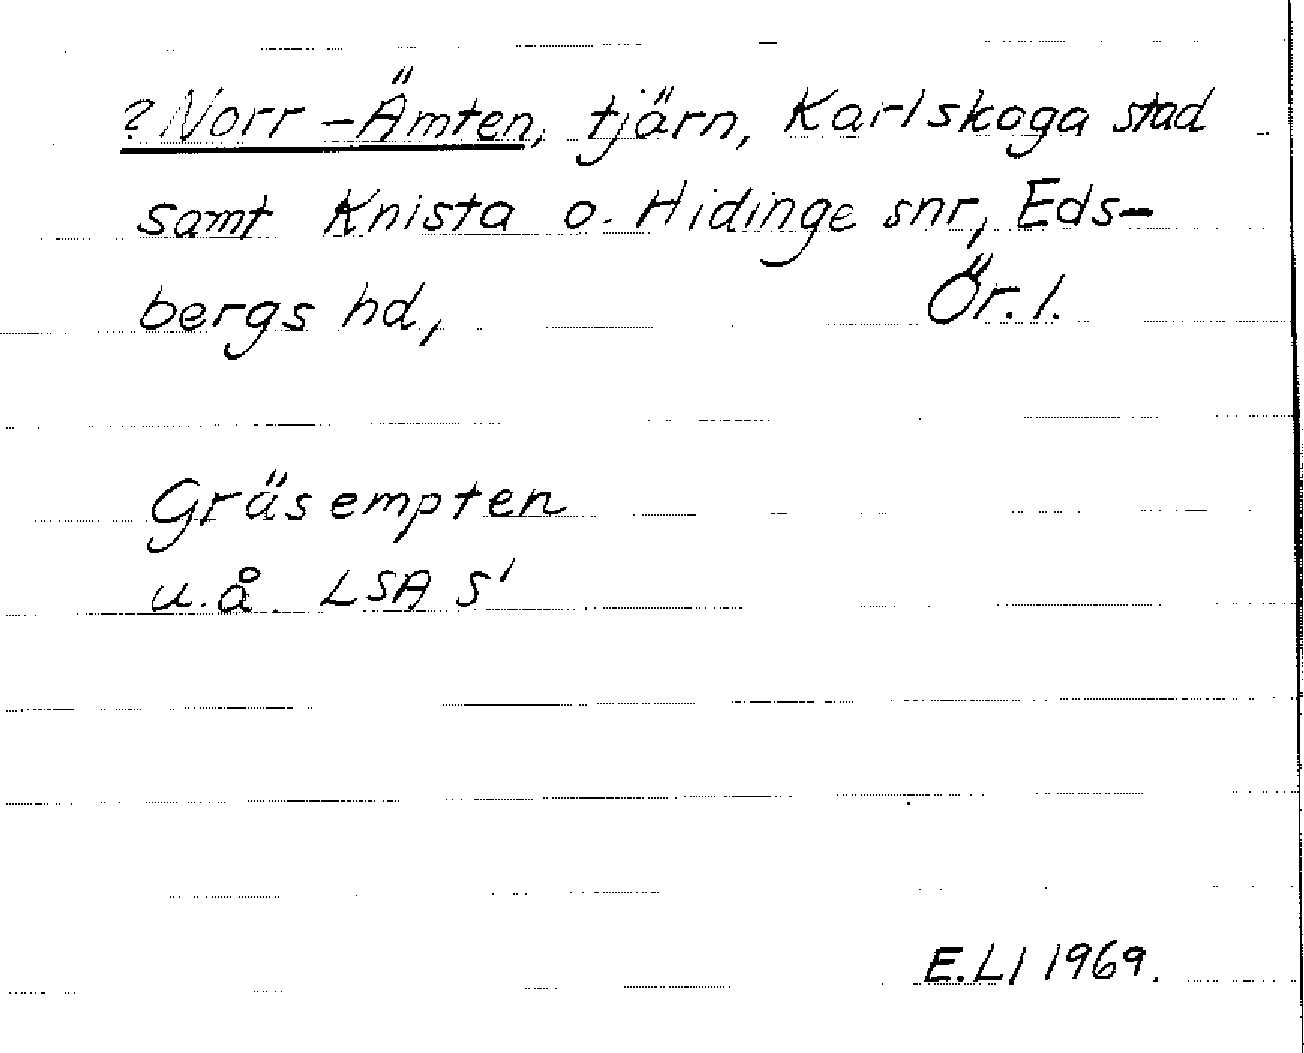 ? Norr-Ämten, tjärn, Karlskoga stad
samt Knista o. Hidinge snr, Eds-
bergs hd, Ör. l.
Gräsempten
u.å. LSA S'
E.Ll 1969.